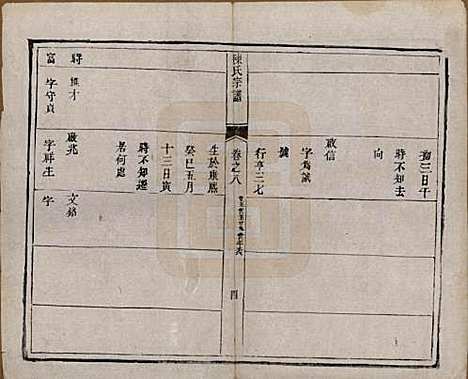 初三日午
時不知去
向
啟信
字為誠
號
行亨三七
陳氏宗譜
卷之八
四
生於康熙
癸巳五月
十三日寅
時不知遷
居何處
時 撰才 啟兆 文銘
富 字守貞 字群生 字